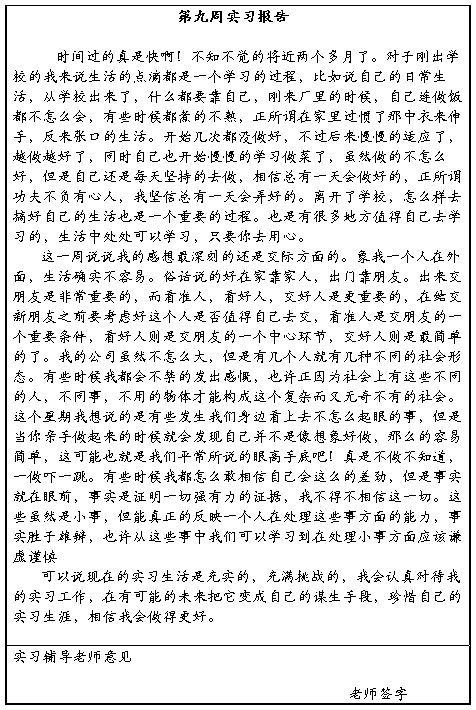 第九周实习报告
时间过的真是快啊！不知不觉的将近两个多月了。对于刚出学
校的我来说生活的点滴都是一个学习的过程，比如说自己的日常生
活，从学校出来了，什么都要靠自己，刚来厂里的时候，自己连做饭
都不怎么会，有些时候都煮的不熟，正所谓在家里过惯了那中衣来伸
手，反来张口的生活。开始几次都没做好，不过后来慢慢的适应了，
越做越好了，同时自己也开始慢慢的学习做菜了，虽然做的不怎么
好，但是自己还是每天坚持的去做，相信总有一天会做好的，正所谓
功夫不负有心人，我坚信总有一天会弄好的。离开了学校，怎么样去
搞好自己的生活也是一个重要的过程。也是有很多地方值得自己去学
习的，生活中处处可以学习，只要你去用心。
这一周说说我的感想最深刻的还是交际方面的。象我一个人在外
面，生活确实不容易。俗话说的好在家靠家人，出门靠朋友。出来交
朋友是非常重要的，而看准人，看好人，交好人是更重要的，在结交
新朋友之前要考虑好这个人是否值得自己去交，看准人是交朋友的一
个重要条件，看好人则是交朋友的一个中心环节，交好人则是最简单
的了。我的公司虽然不怎么大，但是有几个人就有几种不同的社会形
态。有些时候我都会不禁的发出感慨，也许正因为社会上有这些不同
的人，不同事，不用的物体才能构成这个复杂而又无奇不有的社会。
这个星期我想说的是有些发生我们身边看上去不怎么起眼的事，但是
当你亲手做起来的时候就会发现自己并不是像想象好做，那么的容易
简单，这可能也就是我们平常所说的眼高手底吧！真是不做不知道，
一做吓一跳。有些时候我都怎么敢相信自己会这么的差劲，但是事实
就在眼前，事实是证明一切强有力的证据，我不得不相信这一切。这
些虽然是小事，但能真正的反映一个人在处理这些事方面的能力，事
实胜于雄辩，也许从这些事中我们可以学习到在处理小事方面应该谦
虑谨慎
可以说现在的实习生活是充实的，充满挑战的，我会认真对待我
的实习工作，在有可能的未来把它变成自己的谋生手段，珍惜自己的
实习生涯，相信我会做得更好。
实习辅导老师意见
老师签字